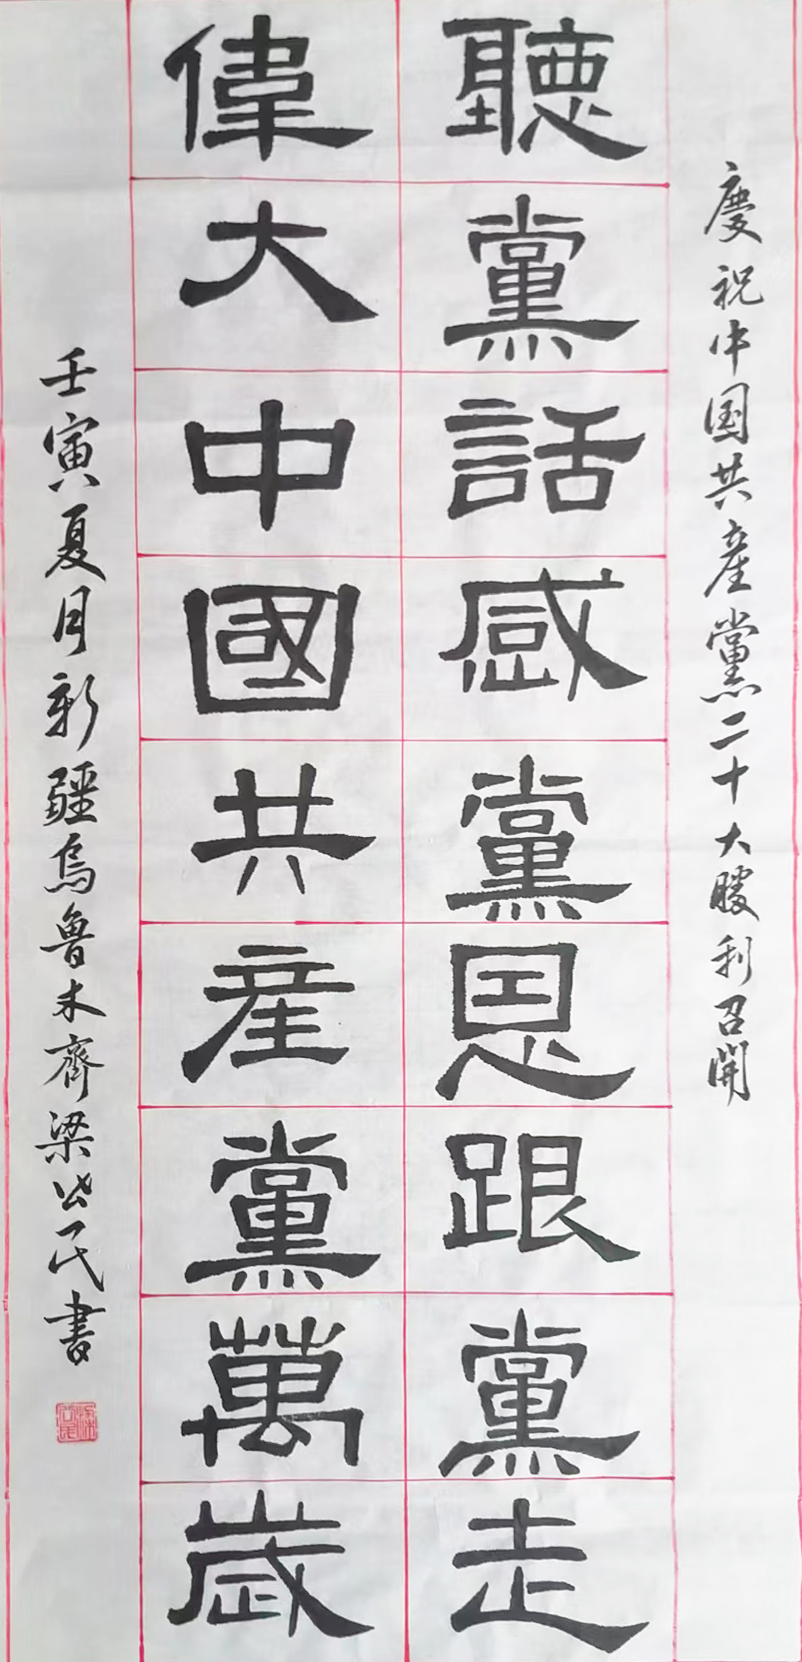 慶祝中国共産黨二十大勝利召開
聽黨話感黨恩跟黨走
偉大中國共産黨萬歲
壬寅夏月新疆烏魯木齊梁公民書